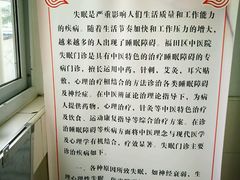 失眠是严重影响人们生活质量和工作能力
的疾病。随着生活节奏加快和工作压力的增大，
越来越多的人出现了睡眠障碍。福田区中医院
失眠门诊是具有中医特色的治疗睡眠障碍的专
病门诊，擅长运用中药、针刺、艾灸、耳穴贴
敷、心理治疗相结合的方法诊治各类睡眠障碍
及神经症。在中医辨证论治理论指导下，为病
人提供药物、心理治疗、针灸等中医特色治疗
及饮食、运动康复指导等综合治疗方案。在诊
治睡眠障碍等疾病方面将中医理念与现代医学
及心理学有机结合，疗效显著。失眠门诊主要
诊治疾病如下：
一、各种原因所致失眠，如神经衰弱、生
理心理性失眠